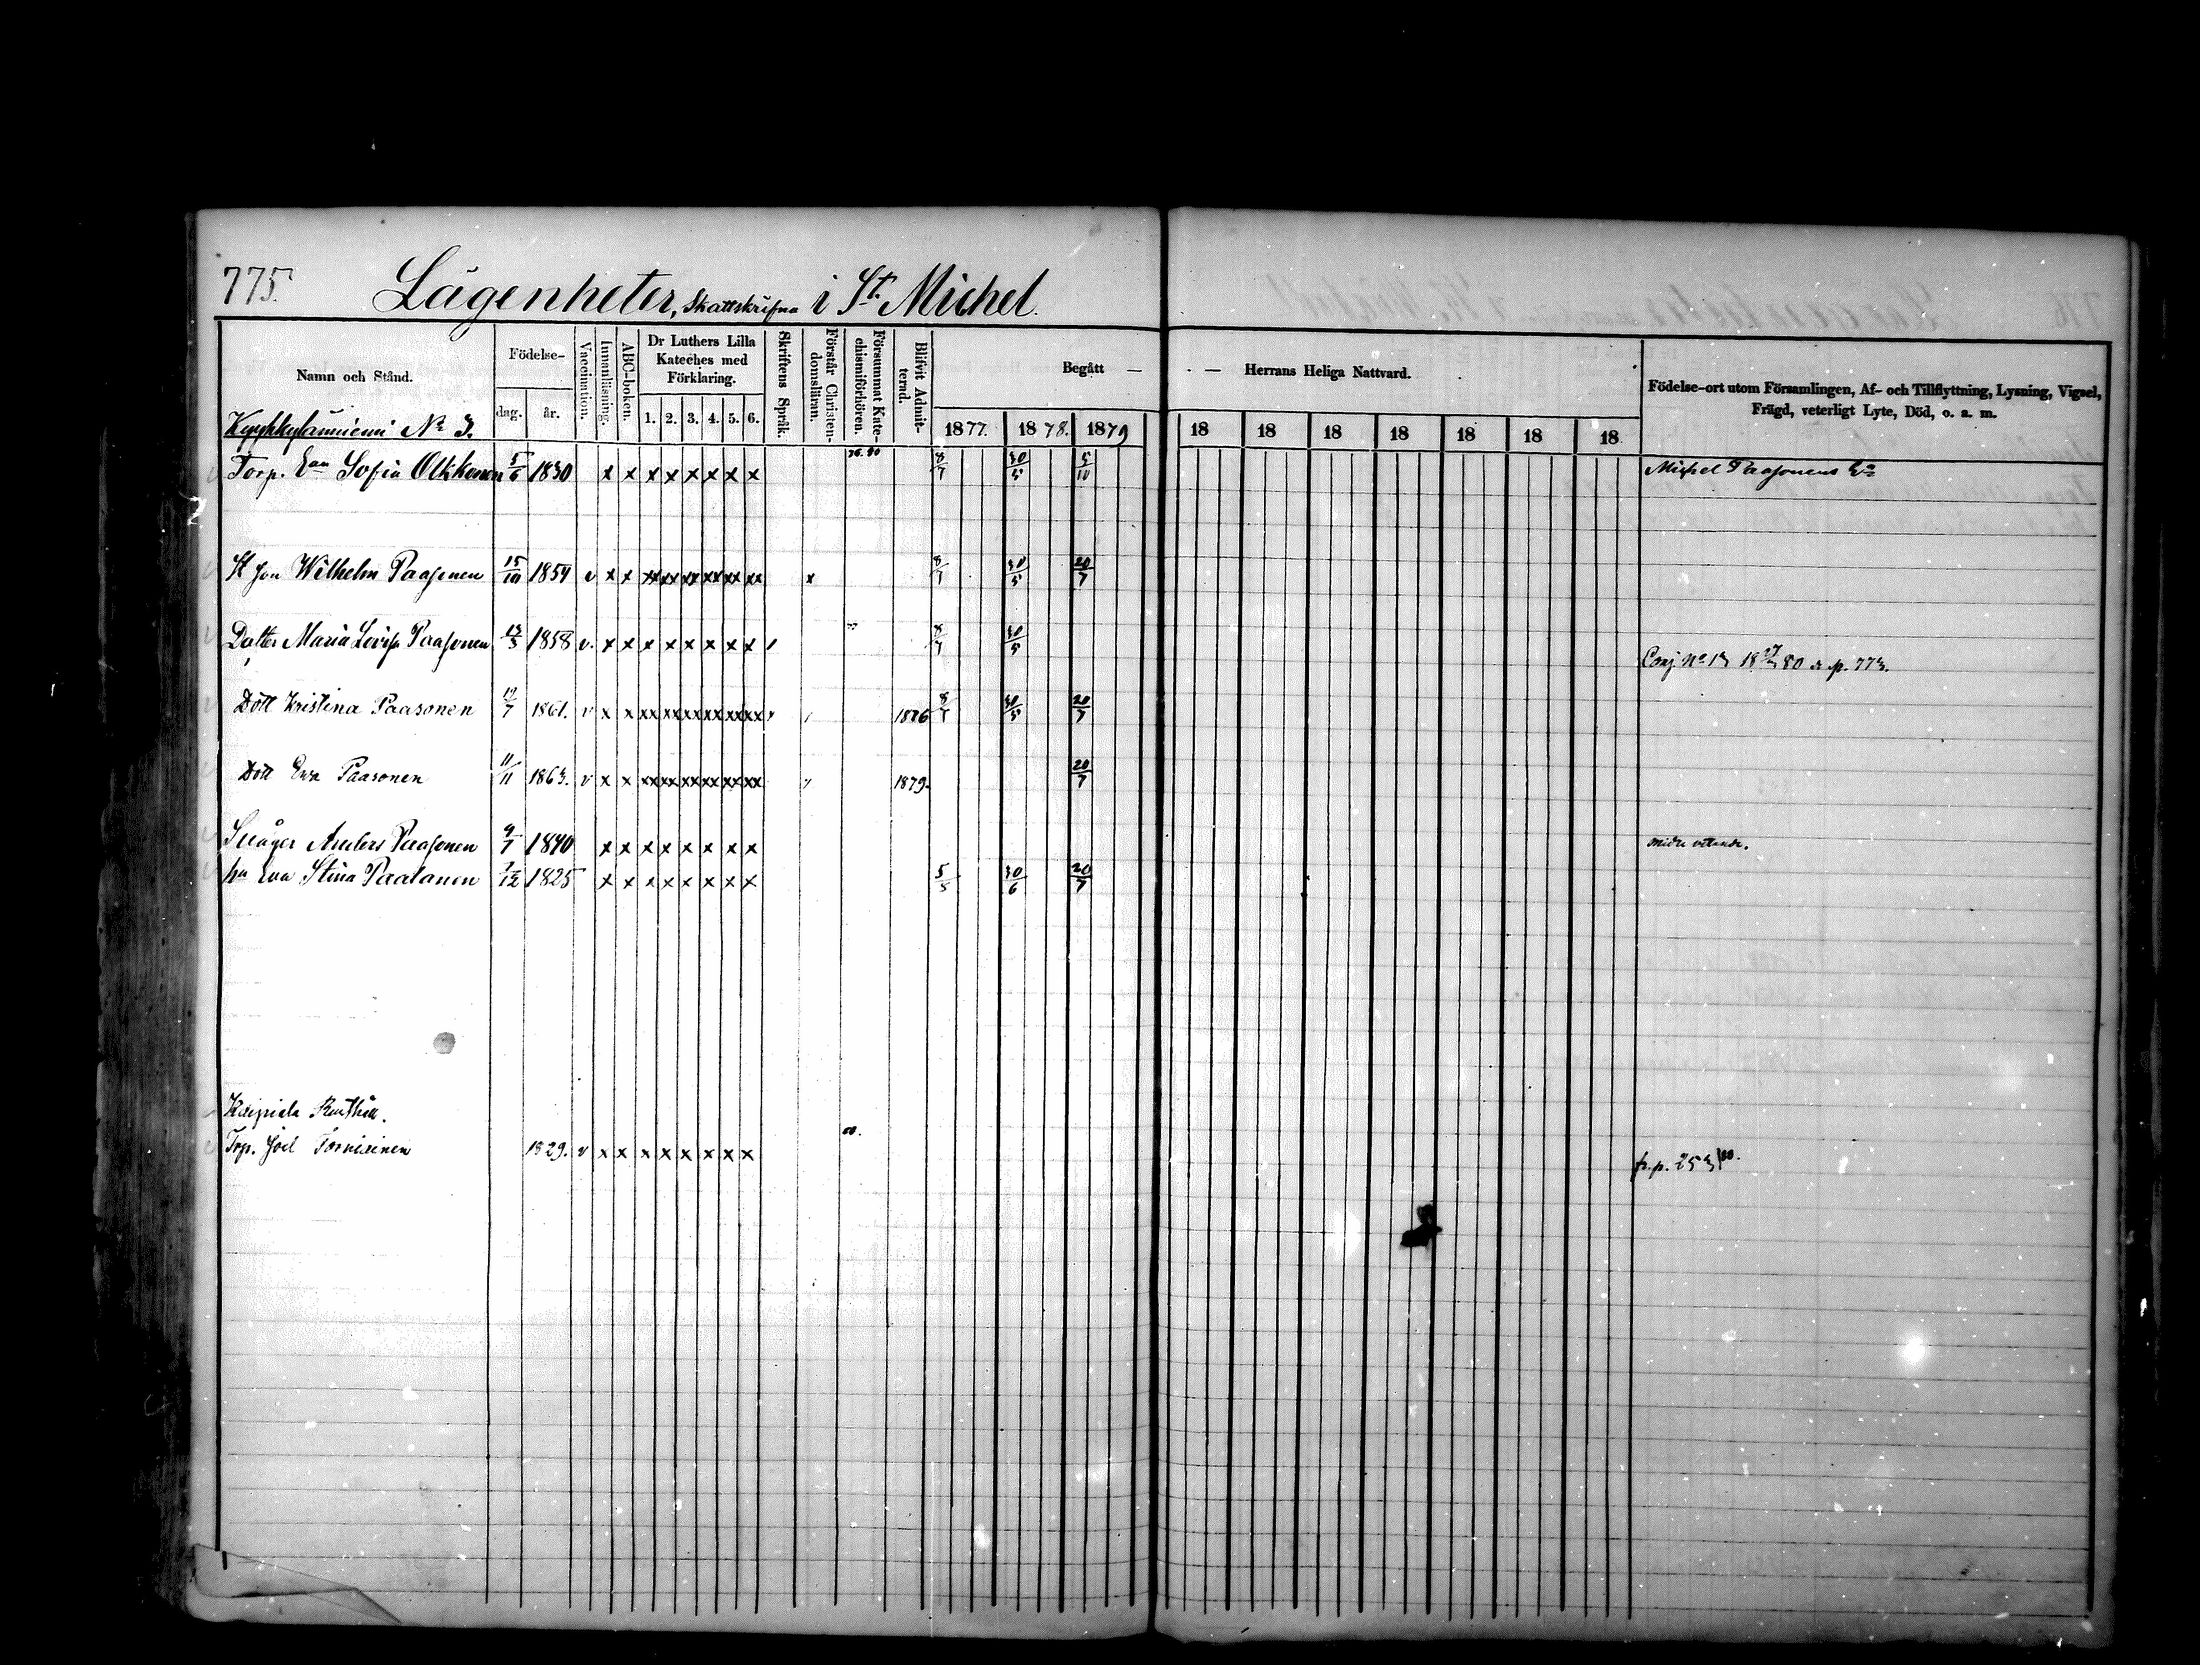 775. Lägenheter, Skattskrifna i St. Michel.
Namn och Stånd. Födelse- dag. år. Vaccination. Innanläsning. ABC-boken. Dr Luthers Lilla Kateches med Förklaring. 1. 2. 3. 4. 5. 6. Skriftens Språk. Förstår Christendomsläran. Försummat Katechismiförhören. Blifvit Admitterad. Begått — — Herrans Heliga Nattvard. Födelse-ort utom Församlingen, Af- och Tillflyttning, Lysning, Vigsel, Frägd, veterligt Lyte, Död, o. a. m.
1877. 1878. 1879 18 18 18 18 18 18 18
No 3.
Torp. Sofia Olkkonen 5/6 1830 x x x x x x x x 8/7 30/5 5/10 Michel Paasonens
Wilhelm Paasonen 15/10 1854 v x x xx xx xx xx xx xx x 8/7 30/5 20/7
Maria Lovisa Paasonen 13/3 1858 v. x x x x x x x x 8/7 30/5
80 p. 773.
Dott Kristina Paasonen 1861. v x x xx xx xx xx xx xx 1876 8/7 30/5 20/7
Dott Eva Paasonen 11/11 1863. v x x xx xx xx xx xx xx 1879. 20/7
Svåger Anders Paasonen 9/7 1840 x x x x x x x x
hu Eva Stina Paatanen 7/12 1825 x x x x x x x x 5/5 30/6 20/7
Torp. Joel 1829. v x x x x x x x x
p. 253